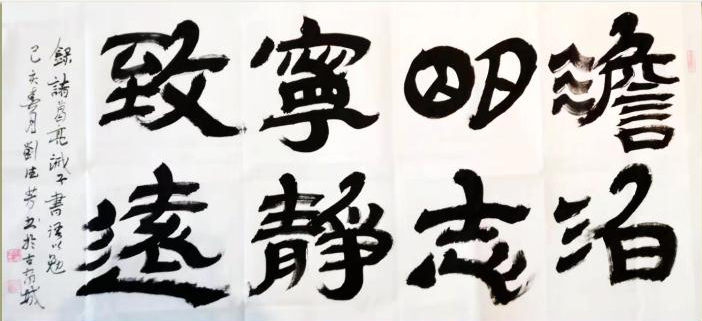 澹泊
明志
寧靜
致遠
録諸葛亮誡子書語以勉
己亥春月劉德芳书於古商城